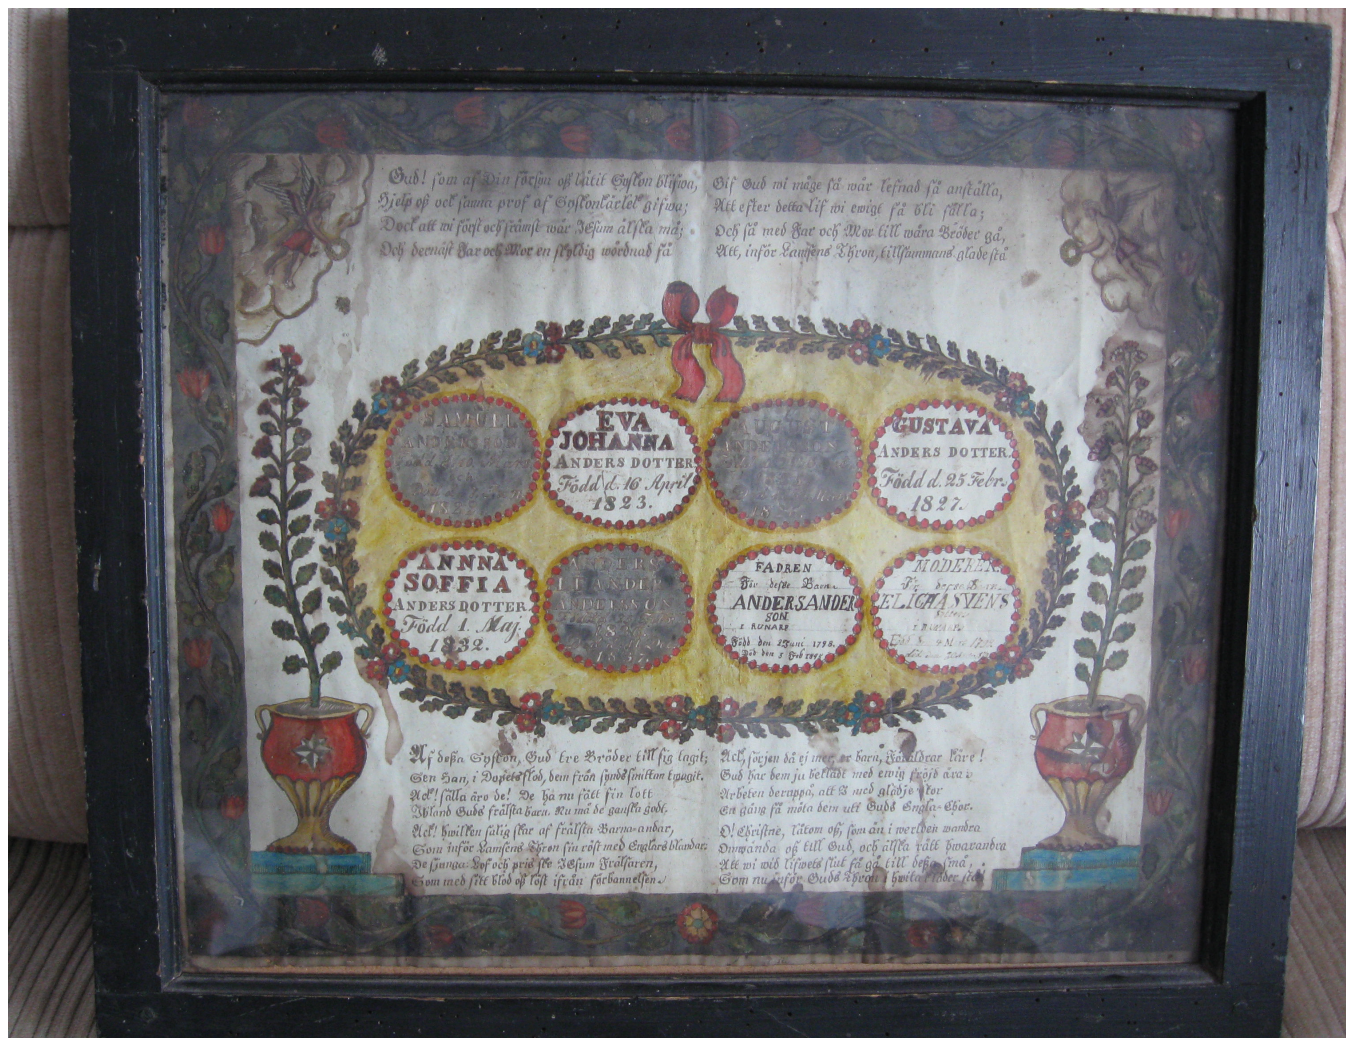 Gud! som af Din försyn oß låtit Syskon blifwa,
Hjelp oß ock sanna prof af Syskonkärlek gifwa;
Dock att wi först och främst wår JEsum älska må;
Och dernäst Far och Mor en skyldig wördnad få
Gif Gud wi måge så wår lefnad så anställa,
Att efter detta lif wi ewigt få bli sälla;
Och så med Far och Mor till wåra Bröder gå,
Att, inför Lamsens Thron, tillsammans glade stå
SAMUEL
EVA
JOHANNA
ANDERS DOTTER
Född d. 16 April
1823.
AUGUST
GUSTAVA
ANDERS DOTTER
Född d. 25 Febr.
1827.
ANNNA
SOFFIA
ANDERS DOTTER
Född 1. Maj.
1832.
ANDERS
LEANDER
ANDERSSON
FADREN
För desse Barn
ANDERS ANDER
SON
I RUNARP
Född den Juni 1798.
Död den 5 Feb
MODEREN
För desse Barn
ELICHA SVENS
Af deßa Syskon, Gud tre Bröder till sig tagit;
Sen Han, i Dopets flod, dem från synds smittom twagit.
Ack! sälla äro de! De ha nu fått sin lott
Ibland Guds frälsta barn. Nu må de ganska godt.
Ack! hwilken salig skar af frälsta Barna-andar,
Som inför Lamsens Thron sin röst med Englars blandar.
De sjunga Lof och pris för JEsum Frälsaren,
Som med sitt blod oß löst ifrån förbannelsen.
Ack, sörjen då ej mer, er barn, Föräldrar käre!
Gud har dem ju beklädt med ewig fröjd
Arbeten derappå, att I med glädje stor
En gång få möta dem utt Guds Engla-Chor.
O! Christne, låtom oß, som än i werlden wandra
Omwända oß till Gud, och älska rätt hwarandra
Att wi wid lifwets slut få gå till deßa små
Som nu inför Guds Thron i hwita kläder stå!